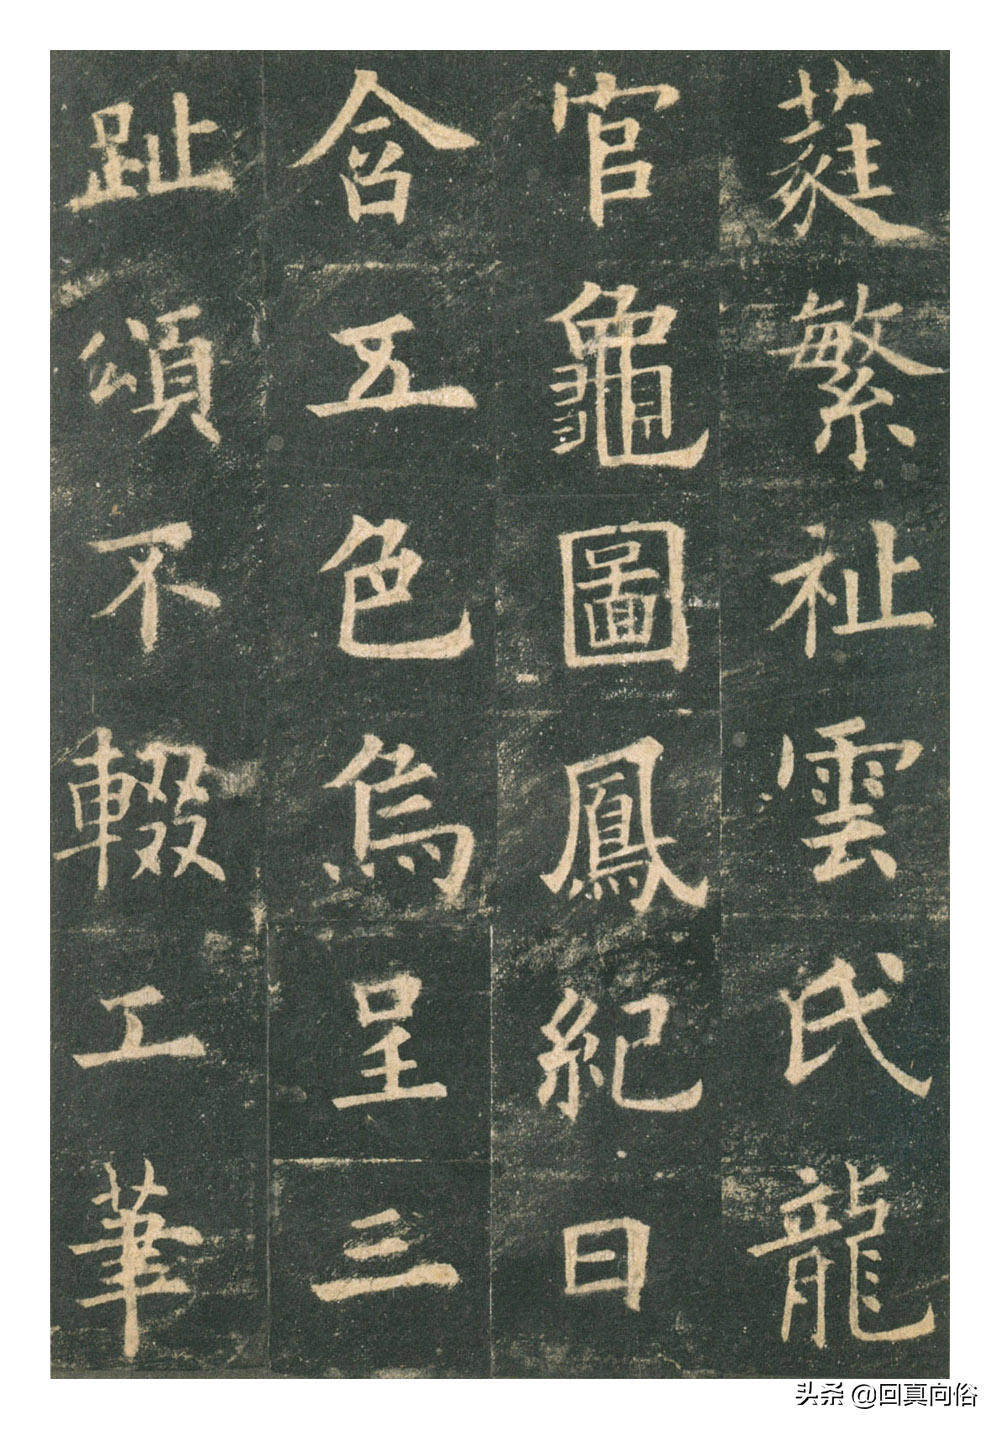 蕤繁祉雲氏龍
官龜圖鳳紀日
含五色烏呈三
趾頌不輟工筆
头条 @回真向俗